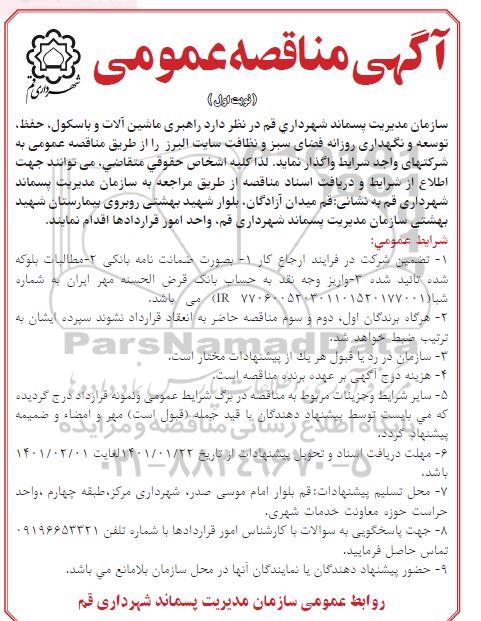 آگهی مناقصه عمومی
شهرداری قم
(نوبت اول)
سازمان مدیریت پسماند شهرداري قم در نظر دارد راهبری ماشین آلات و باسکول، حفظ،
توسعه و نگهداری روزانه فضای سبز و نظافت سایت البرز را از طریق مناقصه عمومی به
شرکتهای واجد شرایط واگذار نماید. لذا کلیه اشخاص حقوقي متقاضي، می توانند جهت
اطلاع از شرایط و دریافت اسناد مناقصه از طریق مراجعه به سازمان مدیریت پسماند
شهرداری قم به نشانی:قم میدان آزادگان، بلوار شهید بهشتی روبروی بیمارستان شهید
بهشتی سازمان مدیریت پسماند شهرداری قم، واحد امور قراردادها اقدام نمایند.
شرایط عمومي:
۱- تضمین شرکت در فرایند ارجاع کار ۱- بصورت ضمانت نامه بانکی ۲-مطالبات بلوکه
شده تائید شده ۳-واریز وجه نقد به حساب بانک قرض الحسنه مهر ایران به شماره
شبا(IR ۷۷۰۶۰۰۵۲۰۳۰۱۱۰۱۵۲۰۱۷۷۰۰۱) می باشد.
۲- هرگاه برندگان اول، دوم و سوم مناقصه حاضر به انعقاد قرارداد نشوند سپرده ایشان به
ترتیب ضبط خواهد شد.
۳- سازمان در رد یا قبول هر یك از پیشنهادات مختار است.
۴- هزینه درج آگهی بر عهده برنده مناقصه است.
۵- سایر شرایط وجزییات مربوط به مناقصه در برگ شرایط عمومی ونمونه قرارداد درج گردیده
که مي بایست توسط پیشنهاد دهندگان با قید جمله (قبول است) مهر و امضاء و ضمیمه
پیشنهاد گردد.
۶- مهلت دریافت اسناد و تحویل پیشنهادات از تاریخ ۱۴۰۱/۰۱/۲۲لغایت ۱۴۰۱/۰۲/۰۱
باشد.
۷- محل تسلیم پیشنهادات:قم بلوار امام موسی صدر، شهرداری مرکز،طبقه چهارم ،واحد
حراست حوزه معاونت خدمات شهری.
۸- جهت پاسخگویی به سوالات با کارشناس امور قراردادها با شماره تلفن ۰۹۱۹۶۶۵۳۳۲۱
تماس حاصل فرمایید.
۹- حضور پیشنهاد دهندگان یا نمایندگان آنها در محل سازمان بلامانع مي باشد.
روابط عمومی سازمان مدیریت پسماند شهرداری قم
ParsNamadData
۰۲۱-۸۸۳۴۹۶۷۰-۵